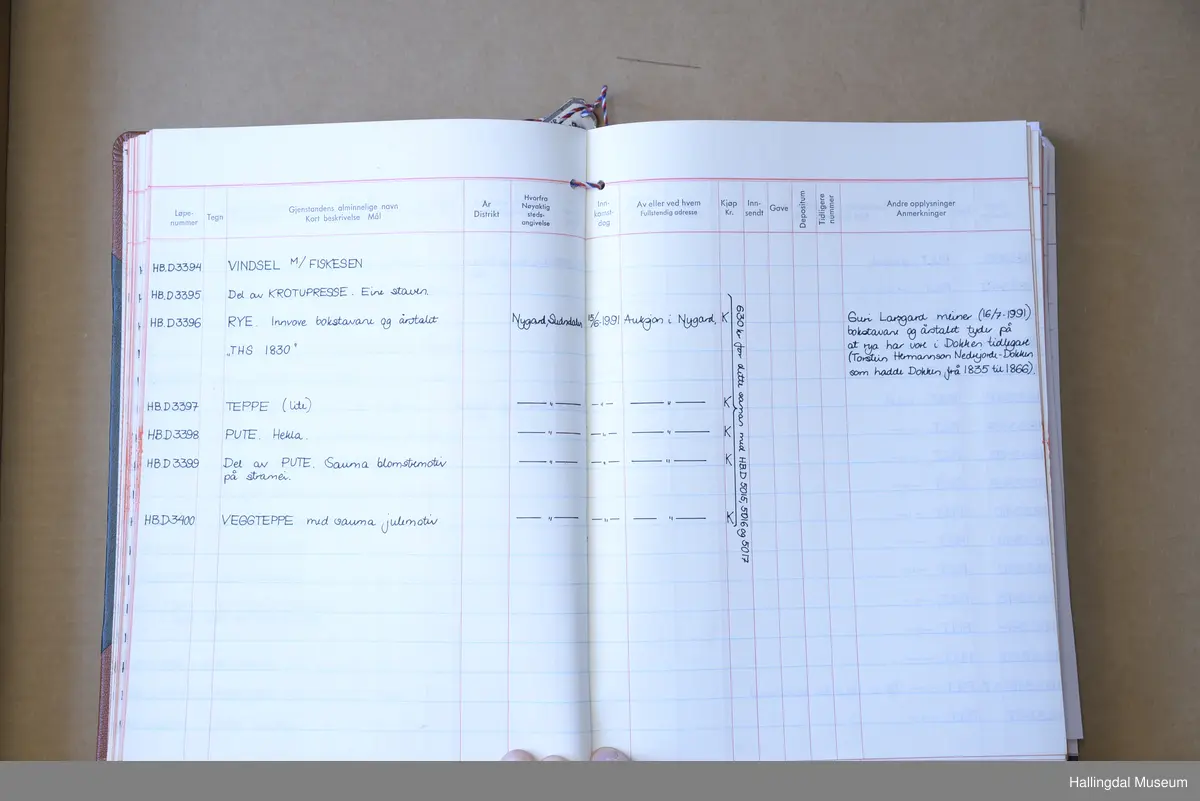 Løpe-nummer Tegn Gjenstandens alminnelige navn Kort beskrivelse Mål År Distrikt Hvorfra Nøyaktig steds-angivelse Inn-komst-dag Av eller ved hvem Fullstendig adresse Kjøp Kr. Inn-sendt Gave Depositum Tidligere nummer Andre opplysninger Anmerkninger
HB.D3394 VINDSEL M/ FISKESEN
HB.D3395 Del av KROTUPRESSE. Eine staven.
HB.D3396 RYE. Innvove bokstavane og årstalet Nygard, Sudndalen 15/6-1991 Auksjon i Nygard, K Guri Larsgard meiner (16/7-1991)
bokstavane og årstalet tyder på
„THS 1830" at rya har vore i Dokken tidlegare
(Torstein Hermannson Nedrejorde-Dokken
som hadde Dokken frå 1835 til 1866).
HB.D3397 TEPPE (lite) — " — — " — — " — K
HB.D3398 PUTE. Hekla. — " — — " — — " — K
HB.D3399 Del av PUTE. Sauma blomstemotiv — " — — " — — " — K
på stramei.
HB.D3400 VEGGTEPPE med sauma julemotiv — " — — " — — " — K
630 kr for dette saman med HB.D 5015, 5016 og 5017
Hallingdal Museum